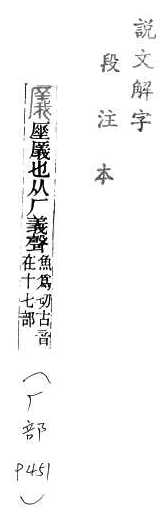 説文解字
段注本
㕒 厜㕒也从厂義聲 魚爲切古音在十七部
（厂部 P451）